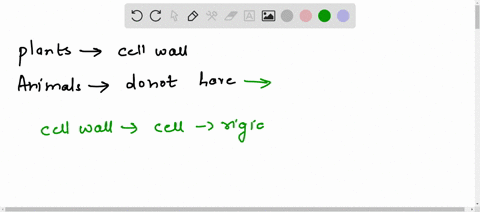 plants → cell wall
Animals → donot have →
cell wall → cell → rigid